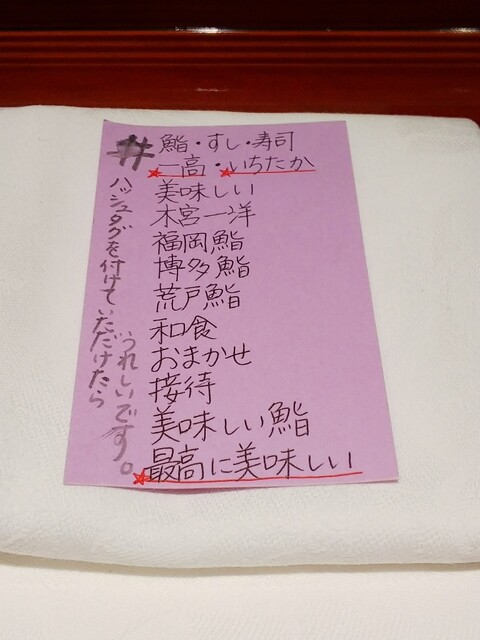 #
鮨・すし・寿司
一高・いちたか
美味しい
木宮一洋
福岡鮨
博多鮨
荒戸鮨
和食
おまかせ
接待
美味しい鮨
最高に美味しい
ハッシュタグを付けていただけたら
うれしいです。